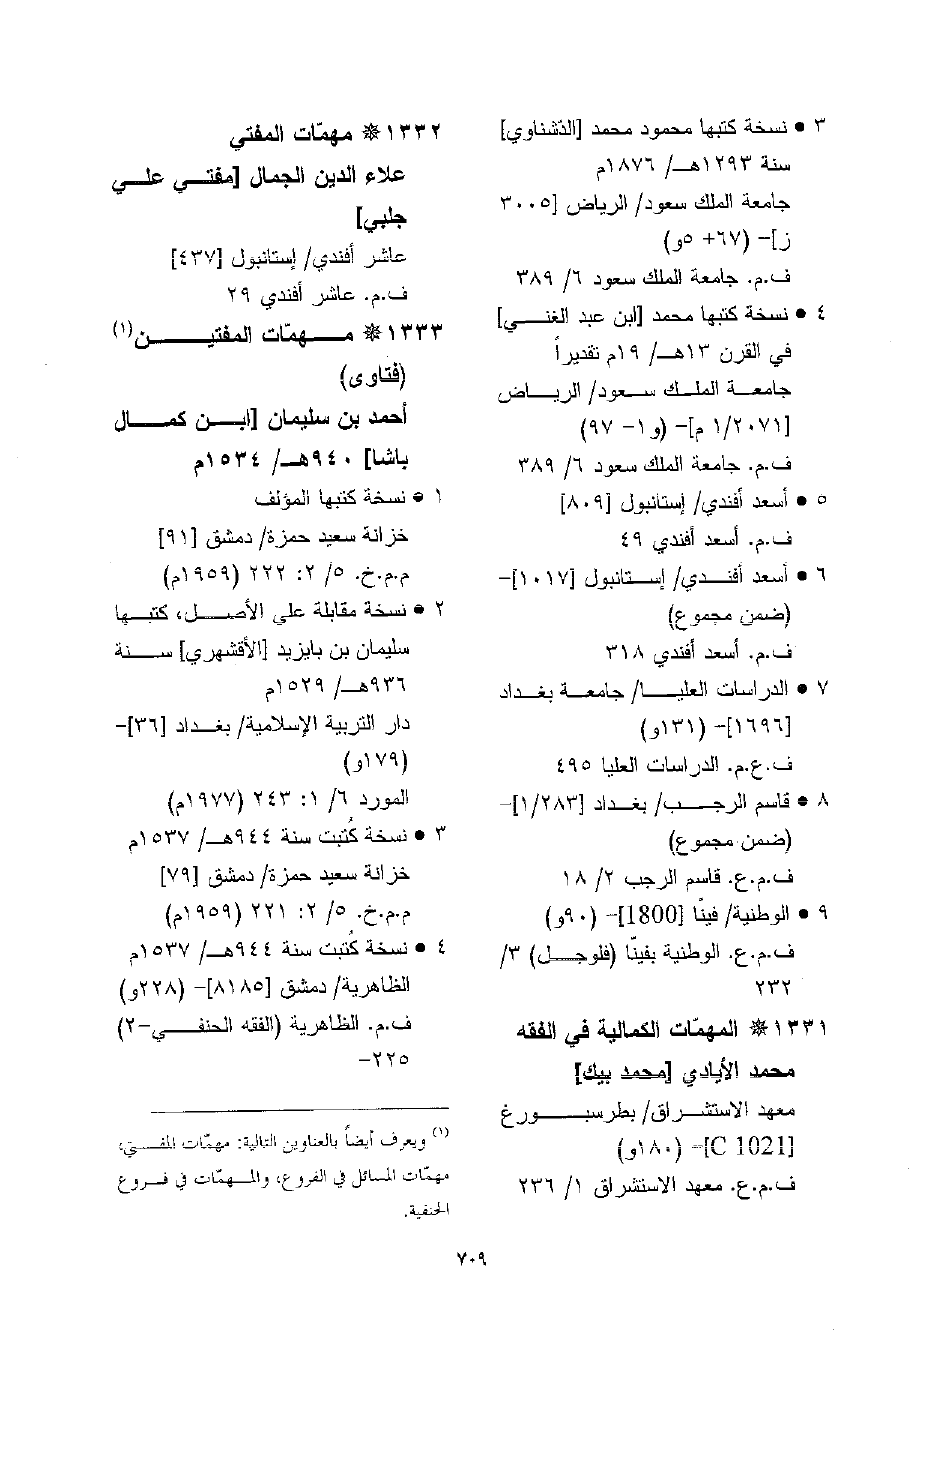 ٣ • نسخة كتبها محمود محمد [الدشناوي]
سنة ١٢٩٣هـ/ ١٨٧٦م
جامعة الملك سعود/ الرياض [٣٠٠٥
ز]- (٦٧+ ٥و)
ف.م. جامعة الملك سعود ٦/ ٣٨٩
٤ • نسخة كتبها محمد [ابن عبد الغني]
في القرن ١٣هـ/ ١٩م تقديراً
جامعة الملك سعود/ الرياض
[١/٢٠٧١ م]- (و١- ٩٧)
ف.م. جامعة الملك سعود ٦/ ٣٨٩
٥ • أسعد أفندي/ إستانبول [٨٠٩]
ف.م. أسعد أفندي ٤٩
٦ • أسعد أفندي/ إستانبول [١٠١٧]-
(ضمن مجموع)
ف.م. أسعد أفندي ٣١٨
٧ • الدراسات العليا/ جامعة بغداد
[١٦٩٦]- (١٣١و)
ف.ع.م. الدراسات العليا ٤٩٥
٨ • قاسم الرجب/ بغداد [١/٢٨٣]-
(ضمن مجموع)
ف.م.ع. قاسم الرجب ٢/ ١٨
٩ • الوطنية/ فينّا [1800]- (٩٠و)
ف.م.ع. الوطنية بفينّا (فلوجل) ٣/
٢٣٢
١٣٣١ * المهمّات الكمالية في الفقه
محمد الأيادي [محمد بيك]
معهد الاستشراق/ بطرسبورغ
[C 1021]- (١٨٠و)
ف.م.ع. معهد الاستشراق ١/ ٢٣٦
١٣٣٢ * مهمّات المفتي
علاء الدين الجمال [مفتي علي
جلبي]
عاشر أفندي/ إستانبول [٤٣٧]
ف.م. عاشر أفندي ٢٩
١٣٣٣ * مهمّات المفتين(١)
(فتاوى)
أحمد بن سليمان [ابن كمال
باشا] ٩٤٠هـ/ ١٥٣٤م
١ • نسخة كتبها المؤلف
خزانة سعيد حمزة/ دمشق [٩١]
م.م.خ. ٥/ ٢: ٢٢٢ (١٩٥٩م)
٢ • نسخة مقابلة على الأصل، كتبها
سليمان بن بايزيد [الأقشهري] سنة
٩٣٦هـ/ ١٥٢٩م
دار التربية الإسلامية/ بغداد [٣٦]-
(١٧٩و)
المورد ٦/ ١: ٢٤٣ (١٩٧٧م)
٣ • نسخة كُتبت سنة ٩٤٤هـ/ ١٥٣٧م
خزانة سعيد حمزة/ دمشق [٧٩]
م.م.خ. ٥/ ٢: ٢٢١ (١٩٥٩م)
٤ • نسخة كُتبت سنة ٩٤٤هـ/ ١٥٣٧م
الظاهرية/ دمشق [٨١٨٥]- (٢٢٨و)
ف.م. الظاهرية (الفقه الحنفي-٢)
٢٢٥-
(١) ويعرف أيضاً بالعناوين التالية: مهمّات المفتي،
مهمّات المسائل في الفروع، والمهمّات في فروع
الحنفية.
٧٠٩